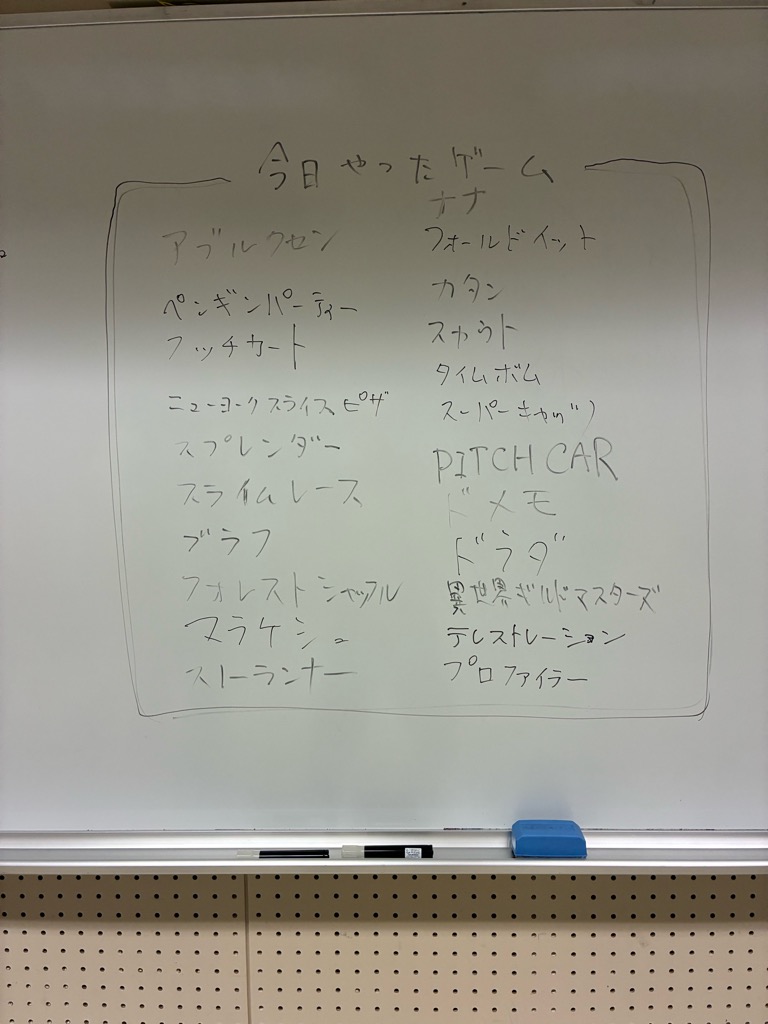 今日やったゲーム
アブルクセン
ペンギンパーティー
フッチカート
ニューヨークスライスピザ
スプレンダー
スライムレース
ブラフ
フォレストシャッフル
マラケシュ
スリーランナー
ナナ
フォールドイット
カタン
スカウト
タイムボム
スーパーキャッツ
PITCH CAR
ドメモ
ドラダ
異世界ギルドマスターズ
テレストレーション
プロファイラー